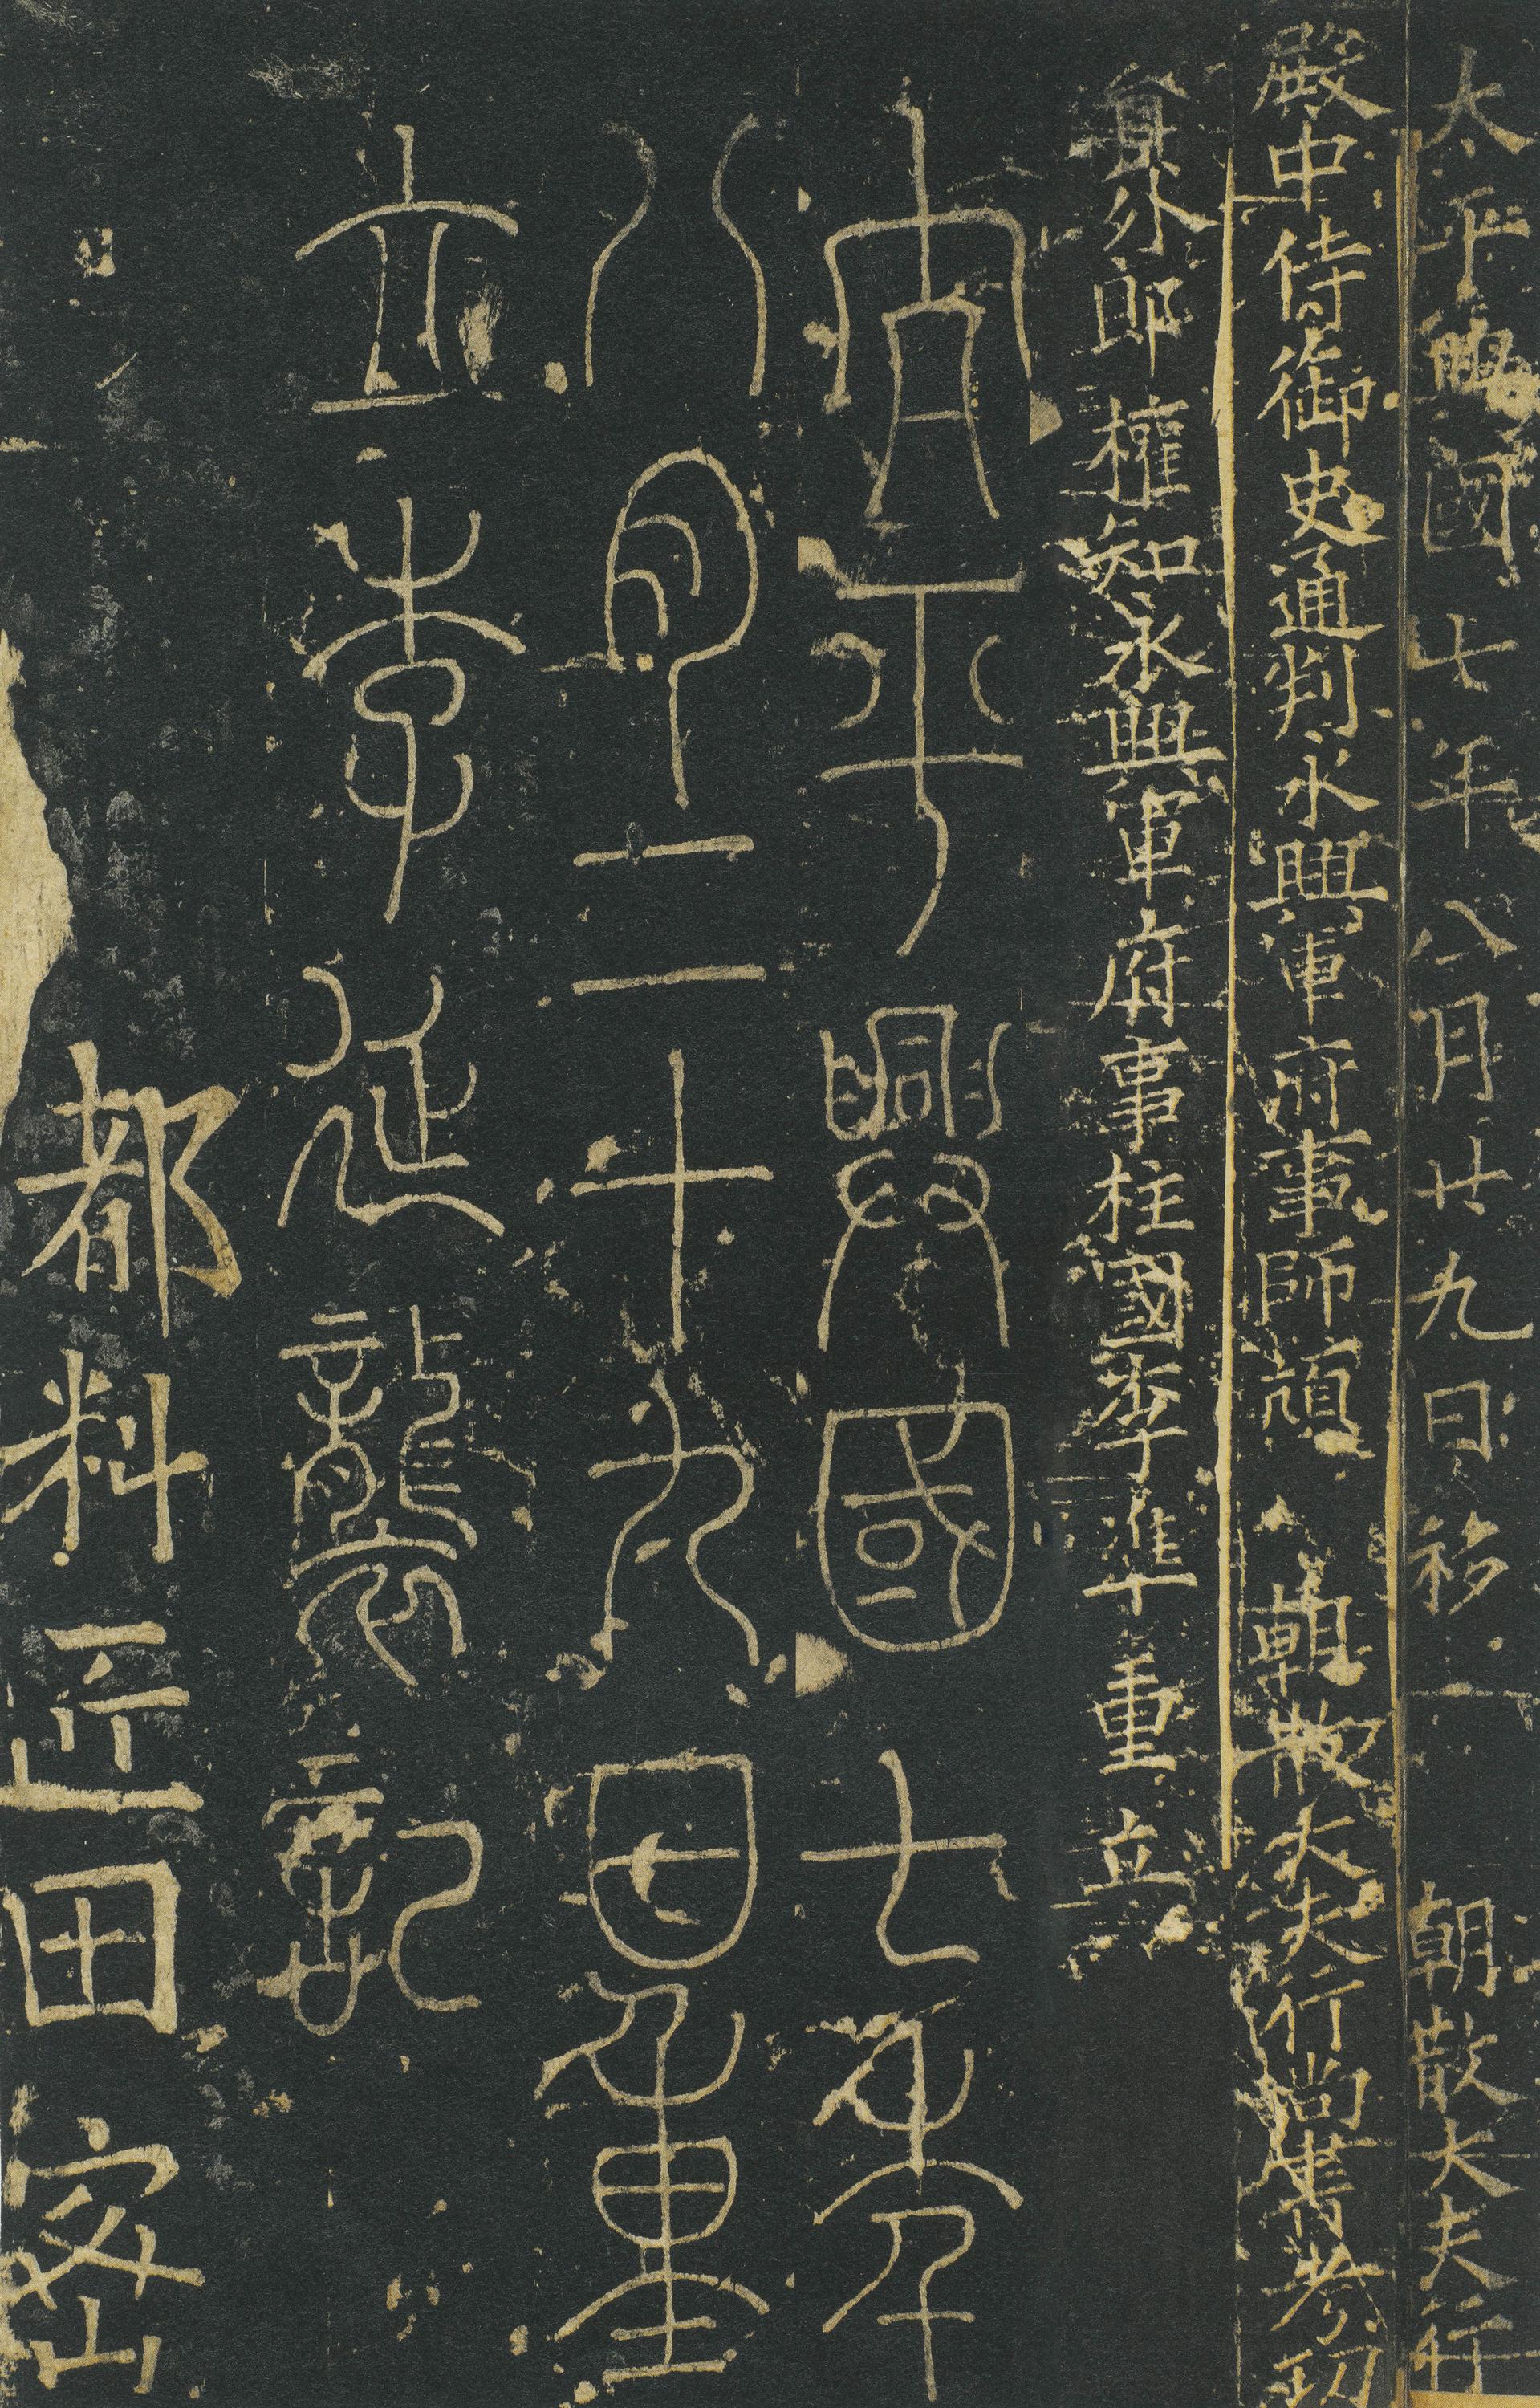 太平興國七年八月廿九日移 朝散大夫行
殿中侍御史通判永興軍府事師頏 朝散大夫行尚書考功
員外郎權知永興軍府事柱國李準重立
太平興國七年
八月二十九日重
立李延襲記
都料匠田密